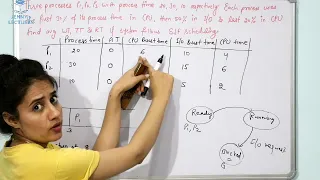 processes P1, P2, P3 with process time 20, 30, 10 respectively. Each process uses
first 30% of its process time in CPU, then 50% in I/O & last 20% in CPU
find avg WT, TT & RT if system follows SJF scheduling.
Process time AT CPU Burst time I/O Burst time CPU time
P1 20 0 6 10 4
P2 30 0 15 6
10 0 5 2
Ready Running
P1, P2
I/O request
Blocked
P1